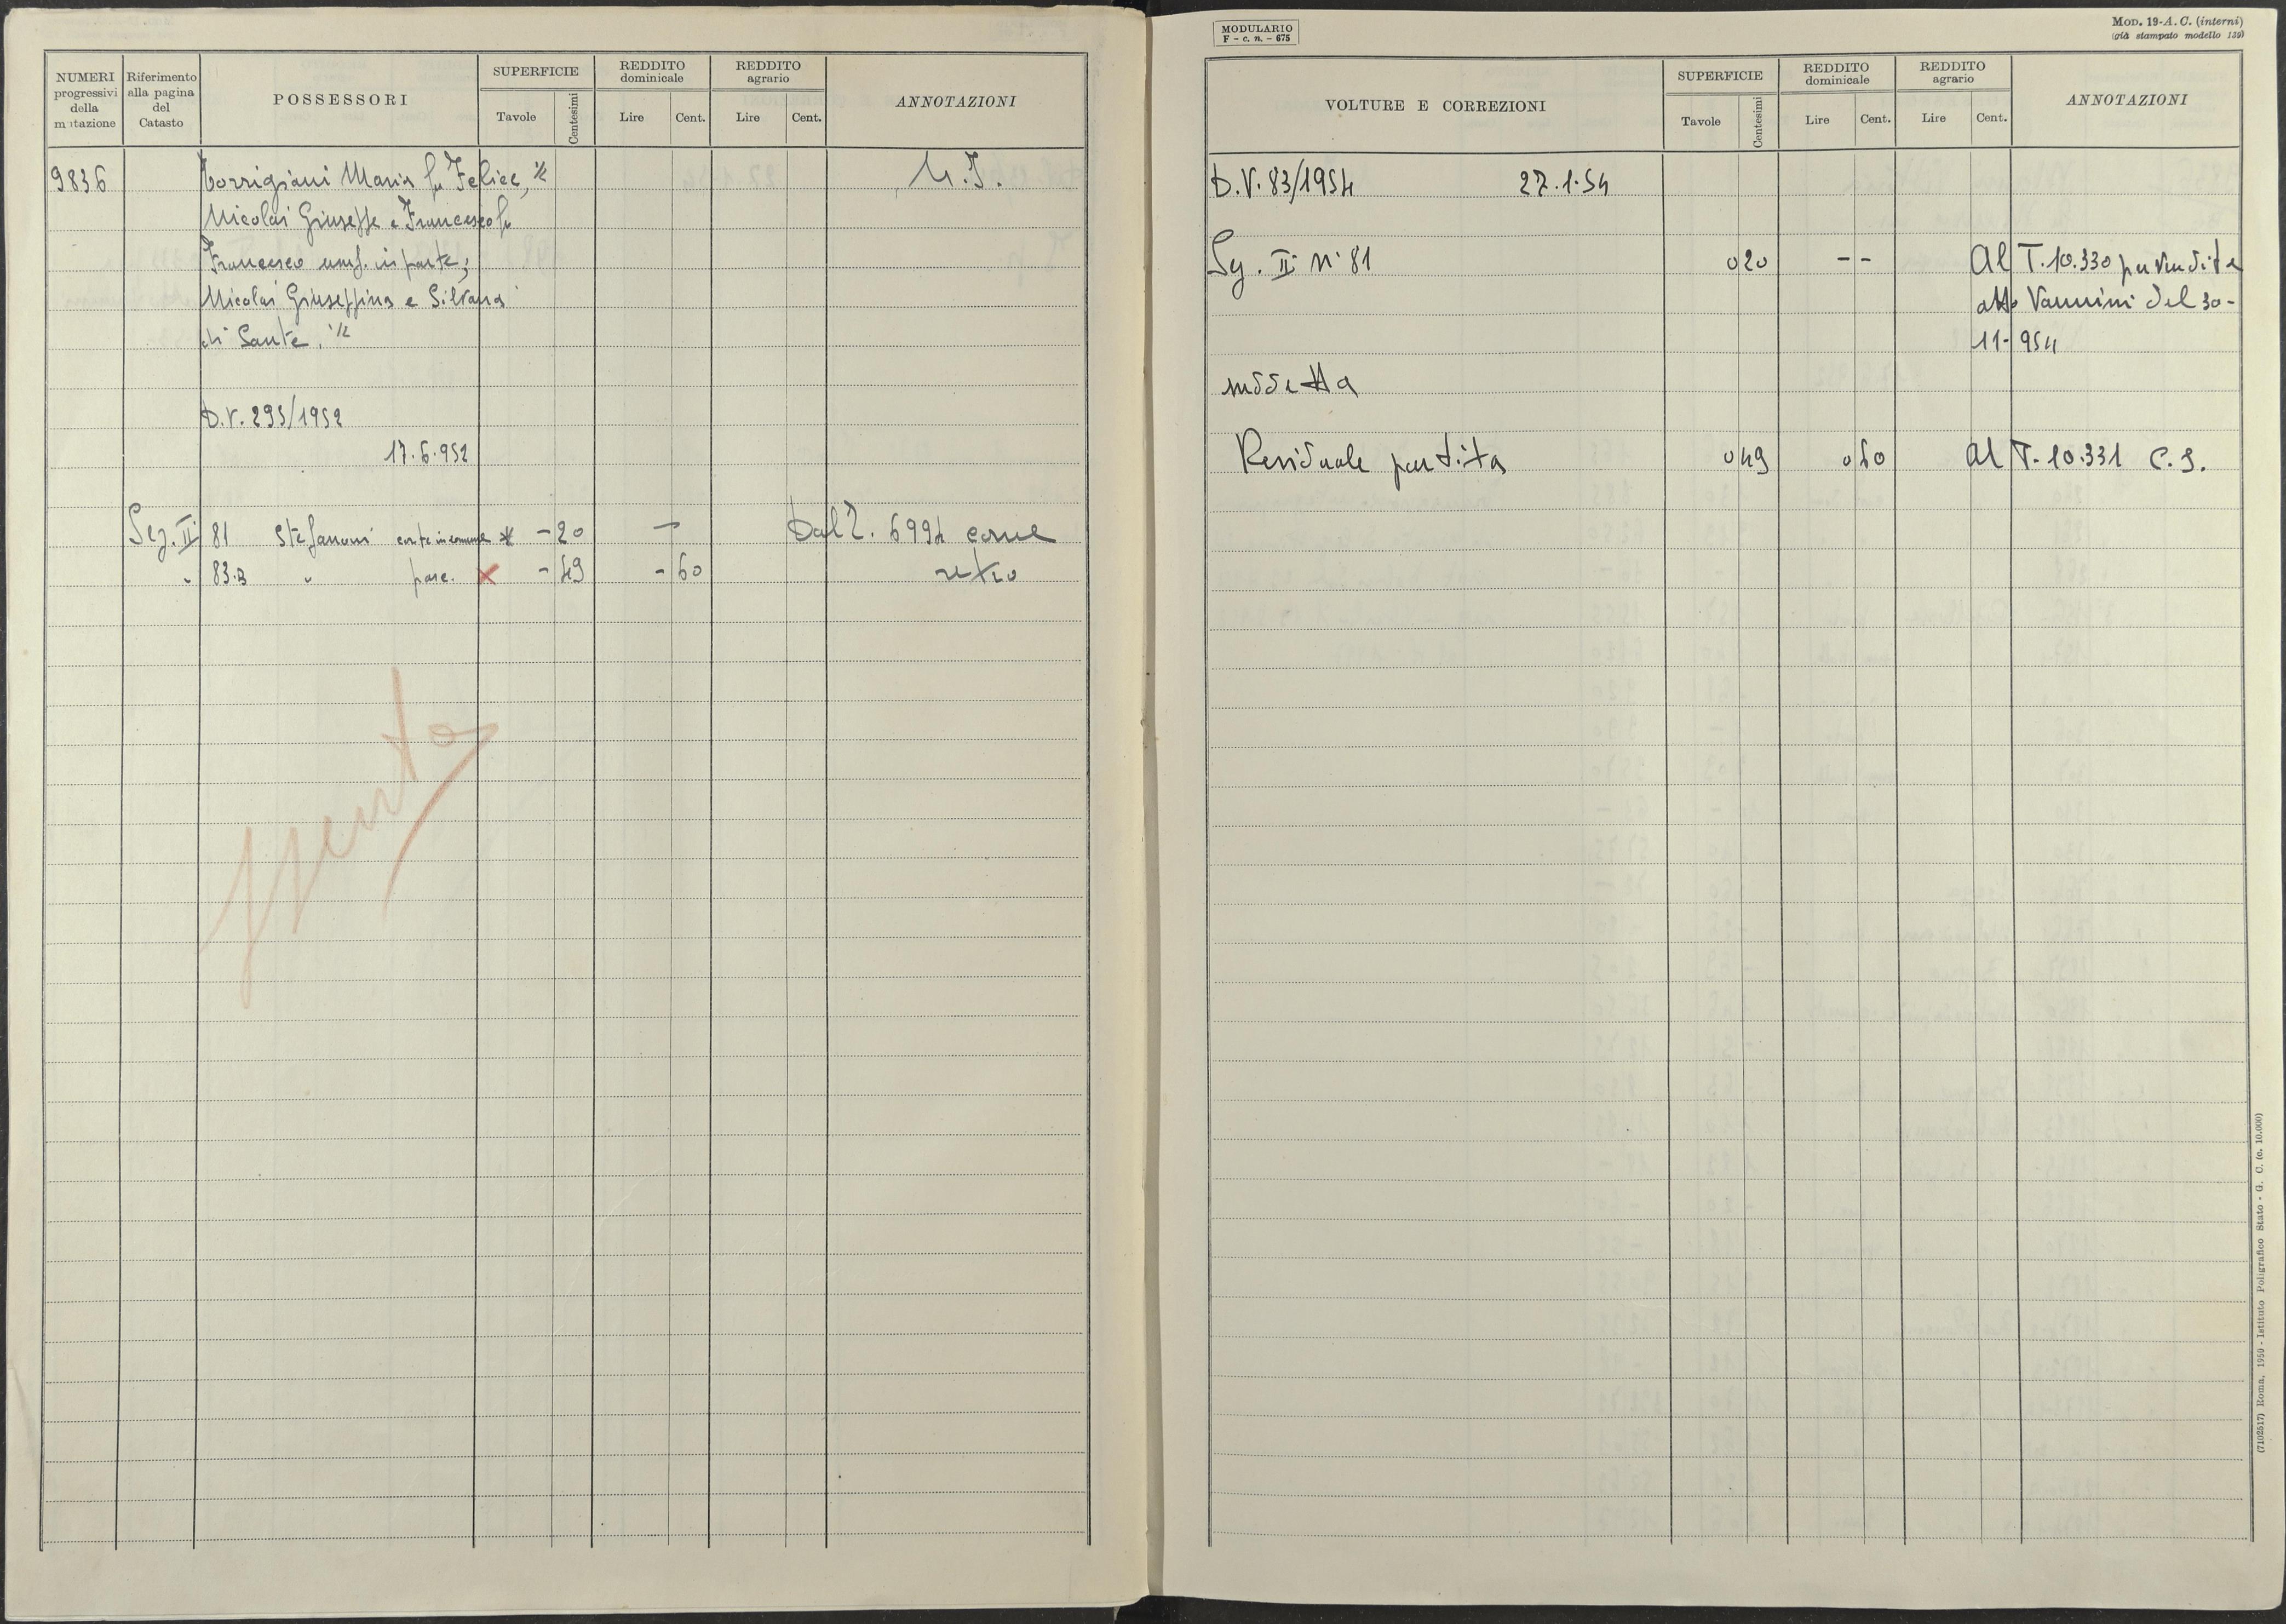 NUMERI progressivi della mutazione
Riferimento alla pagina del Catasto
POSSESSORI
SUPERFICIE
Tavole
Centesimi
REDDITO dominicale
Lire
Cent.
REDDITO agrario
Lire
Cent.
ANNOTAZIONI
9836 Torrigiani Maria fu Felice, 1/2
Nicolai Giuseppe e Francesco fu
Francesco usuf. in parte;
Nicolai Giuseppina e Silvana
di Sante, 1/2
D.V. 293/1952
17.6.952
Sez. II 81 Stefanoni corte in comune - 20 — Dal T. 6994 come
" 83.B " pasc. × - 49 - 60 retro
spento
MODULARIO
F - c. n. - 675
MOD. 19-A. C. (interni)
(già stampato modello 139)
VOLTURE E CORREZIONI
SUPERFICIE
Tavole
Centesimi
REDDITO dominicale
Lire
Cent.
REDDITO agrario
Lire
Cent.
ANNOTAZIONI
D.V. 83/1954 27.1.54
Sez. II N° 81 0 20 - - Al T. 10.330 per vendita
atto Vannini del 30-
11-954
suddetta
Residuale partita 0 49 0 60 Al T. 10.331 C.S.
(7102517) Roma, 1950 - Istituto Poligrafico Stato - G. C. (c. 10.000)